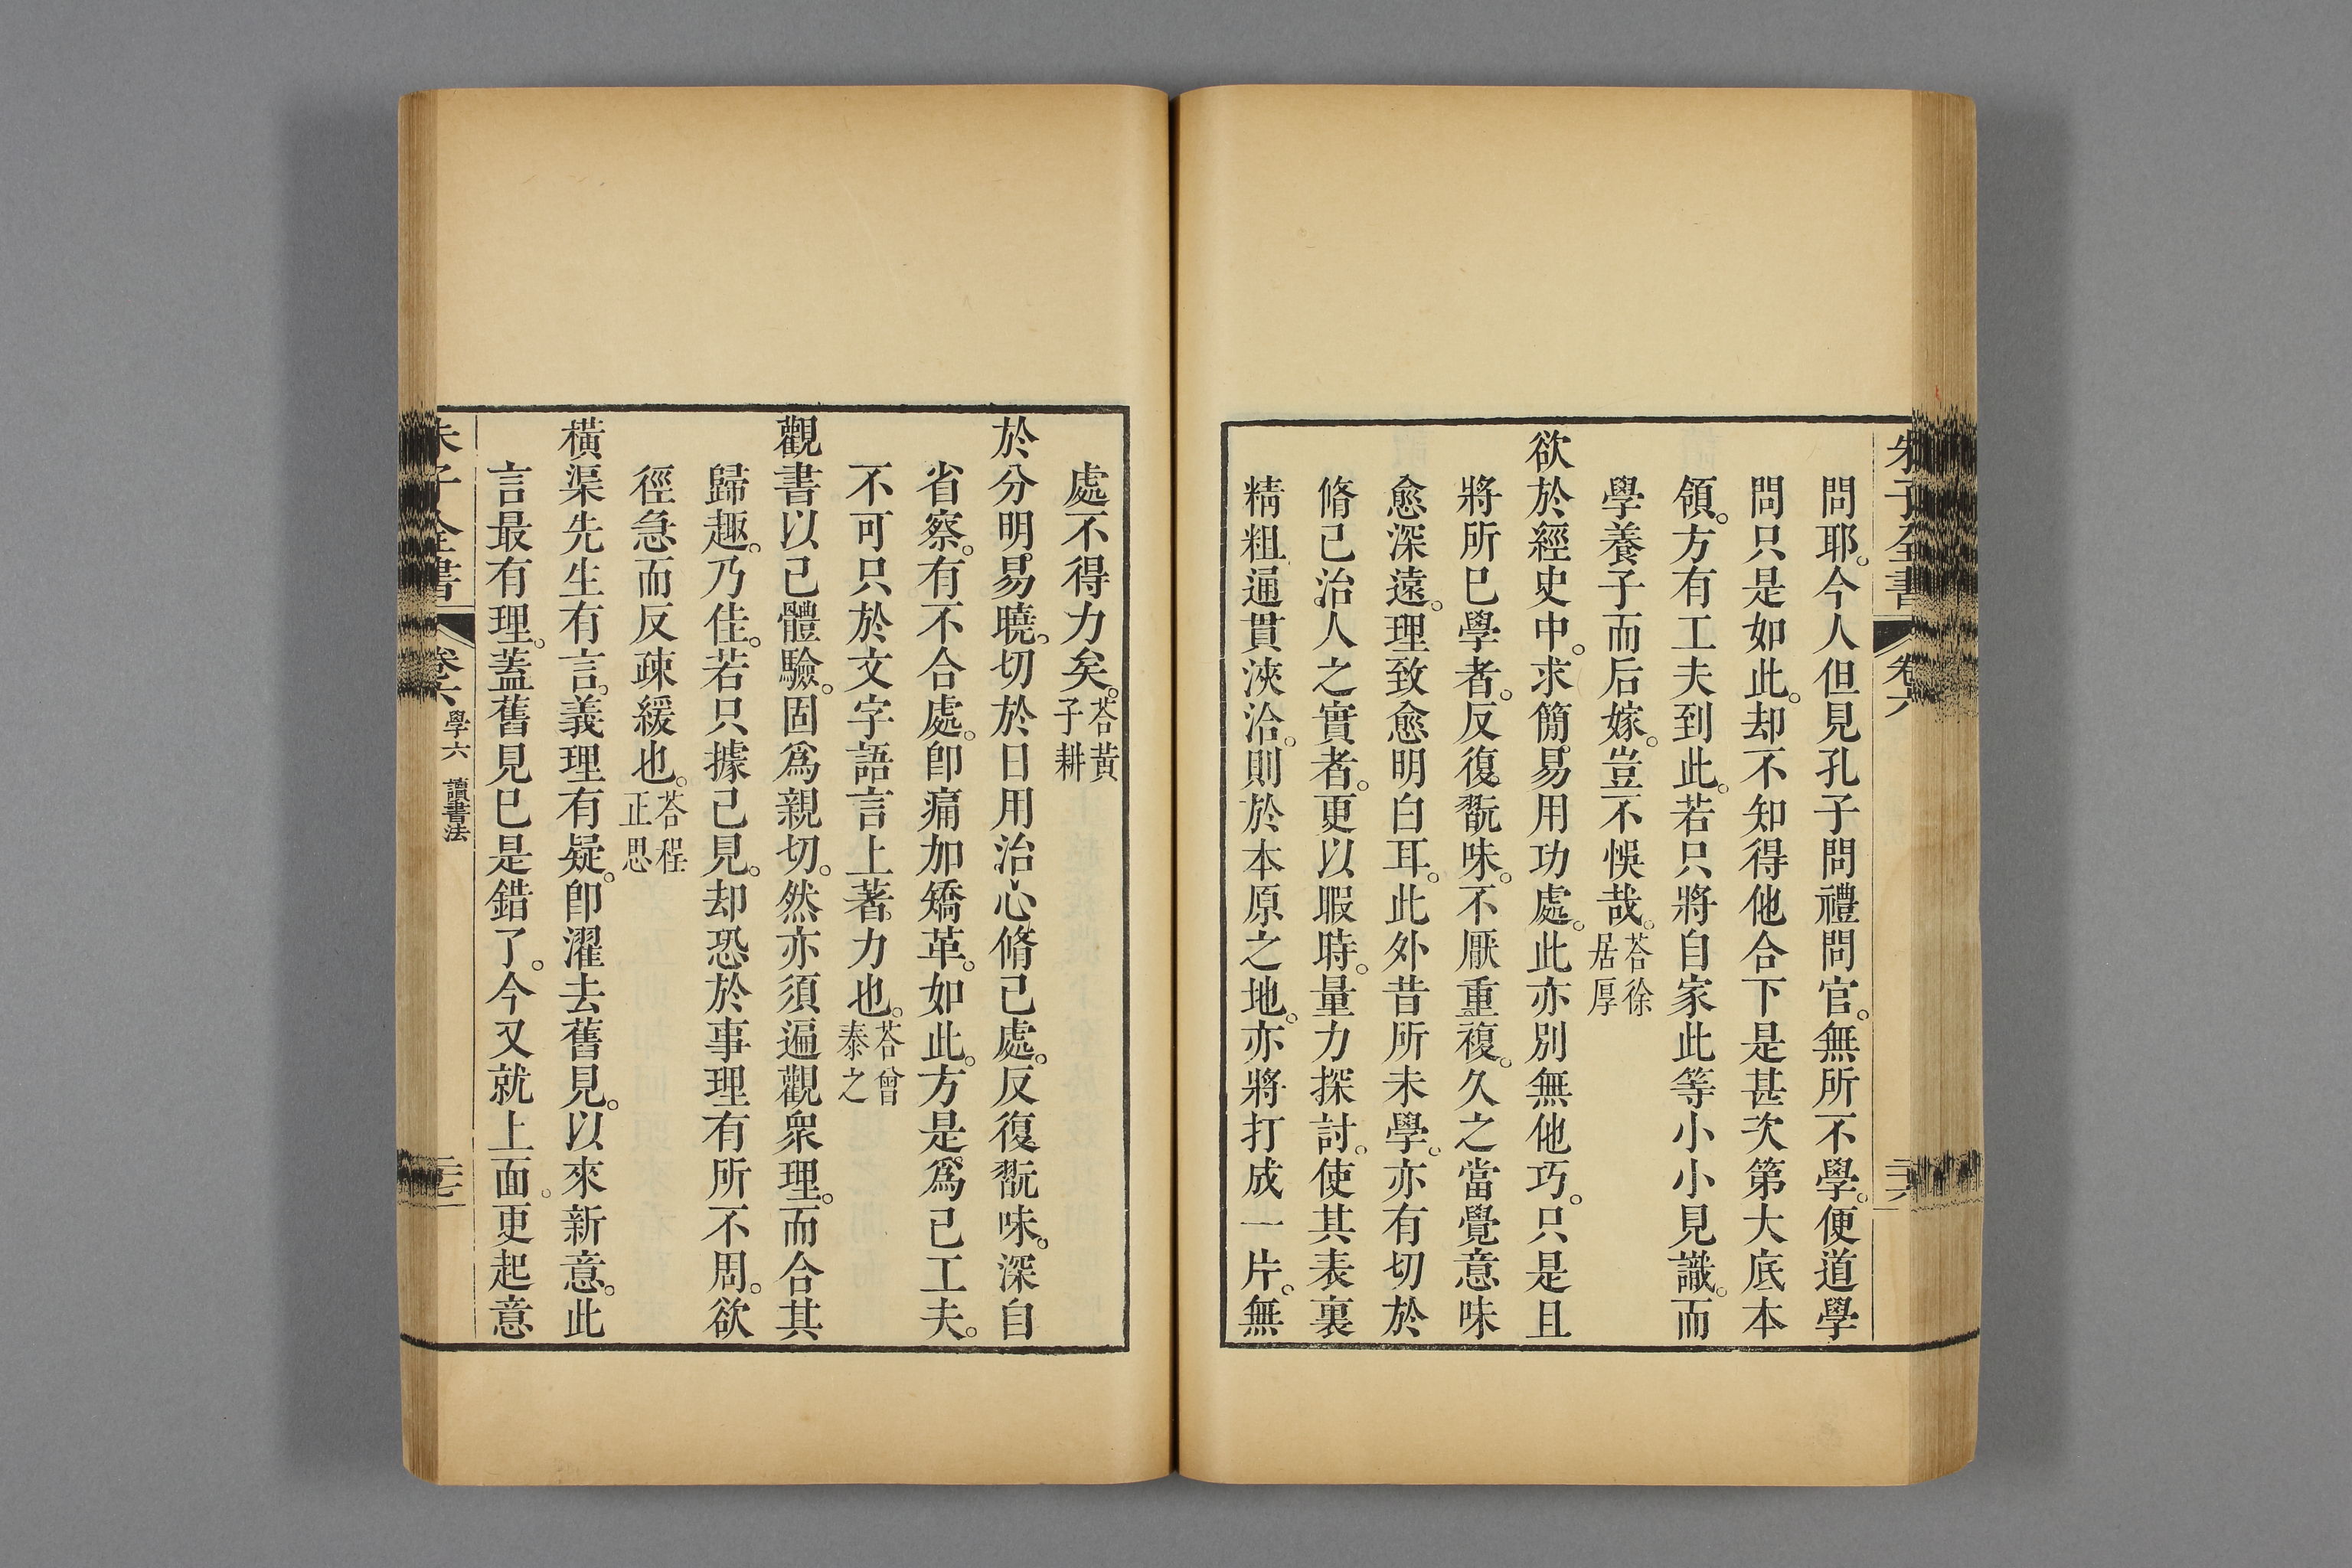 朱子全書 卷六 二十六
問耶。今人但見孔子問禮問官。無所不學。便道學
問只是如此。却不知得他合下是甚次第大底本
領。方有工夫到此。若只將自家此等小小見識。而
學養子而后嫁。豈不悞哉。荅徐居厚
欲於經史中。求簡易用功處。此亦別無他巧。只是且
將所已學者。反復翫味。不厭重複。久之當覺意味
愈深遠。理致愈明白耳。此外昔所未學。亦有切於
脩己治人之實者。更以暇時。量力探討。使其表裏
精粗通貫浹洽。則於本原之地。亦將打成一片。無
處不得力矣。荅黃子耕
於分明易曉。切於日用治心脩己處。反復翫味。深自
省察。有不合處。卽痛加矯革。如此。方是爲己工夫。
不可只於文字語言上著力也。荅曾泰之
觀書以己體驗。固爲親切。然亦須遍觀衆理。而合其
歸趣。乃佳。若只據己見。却恐於事理有所不周。欲
徑急而反疎緩也。荅程正思
橫渠先生有言。義理有疑。卽濯去舊見。以來新意。此
言最有理。蓋舊見已是錯了。今又就上面。更起意
朱子全書 卷六 學六 讀書法 二十七